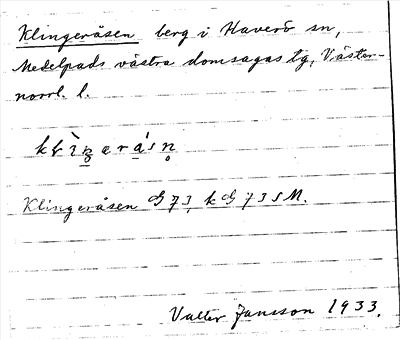 Klingeråsen berg i Haverö sn,
Medelpads västra domsagas tg, Väster-
norrl. l.
Klingeråsen 73, k 73 s M.
Valter Jansson 1933.